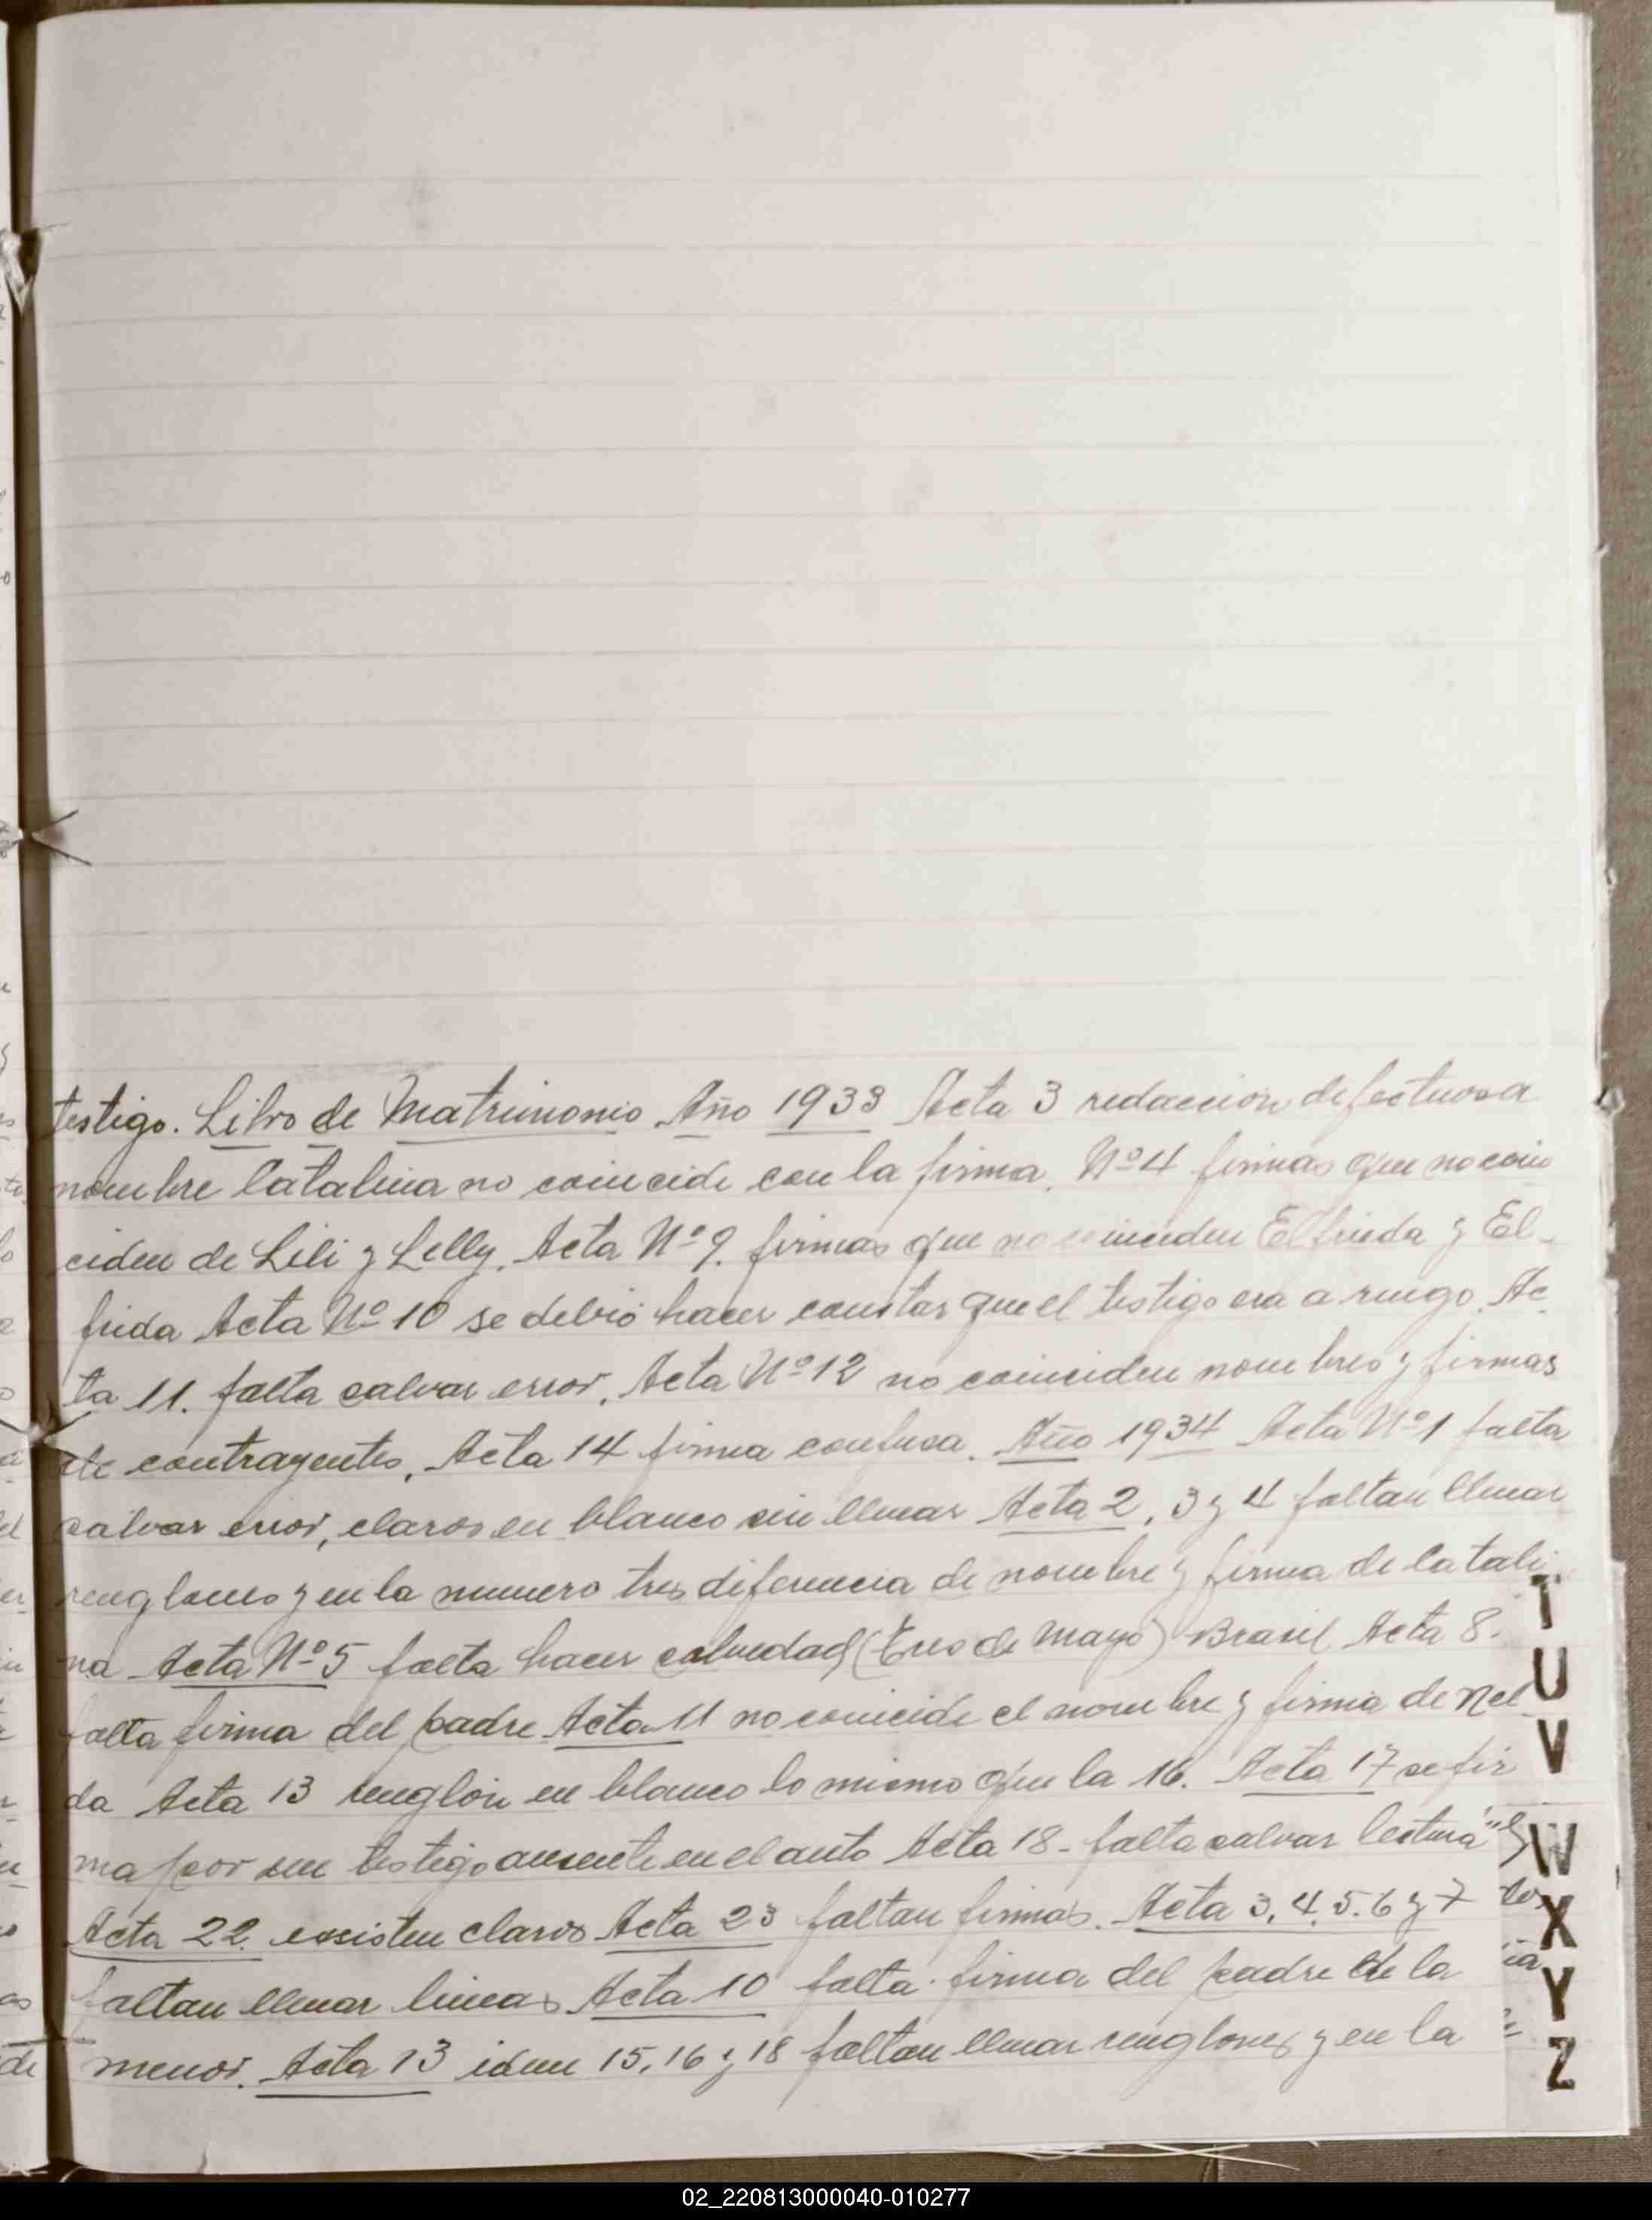 testigo. Libro de Matrimonio Año 1933 Acta 3 redaccion defectuosa
nombre Catalina no coincide con la firma. Nº 4 firmas que no coin
ciden de Lili y Lelly. Acta Nº 9. firmas que no coinciden Elfrieda y El-
frida Acta Nº 10 se debió hacer constar que el testigo era a ruego. Ac
ta 11. falta salvar error. Acta Nº 12 no coinciden nombres y firmas
de contrayentes. Acta 14 firma confusa. Año 1934 Acta Nº 1 falta
salvar error, claros en blanco sin llenar Acta 2, 3 y 4 faltan llenar
renglones y en la numero tres diferencia de nombre y firma de Catali
na Acta Nº 5 falta hacer salvedad (Tres de Mayo) Brasil Acta 8.
falta firma del padre Acta 11 no coincide el nombre y firma de Nel
da Acta 13 renglón en blanco lo mismo que la 16. Acta 17 se fir
ma por un testigo ausente en el auto Acta 18 - falta salvar lectura
Acta 22. exsisten claros Acta 23 faltan firmas. Acta 3, 4, 5. 6 y 7
faltan llenar lineas Acta 10 falta firma del padre de la
menor. Acta 13 idem 15, 16 y 18 faltan llenar renglones y en la
T
U
V
W
X
Y
Z
02_220813000040-010277